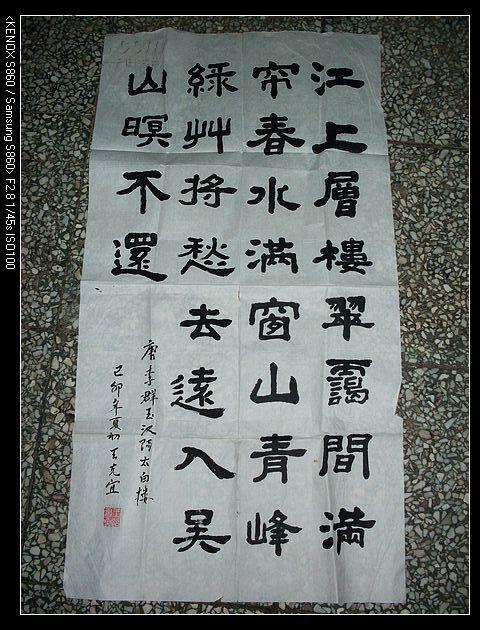 江上層樓翠靄間滿
帘春水滿窗山青峰
綠艸將愁去遠入吳
山暝不還
唐李群玉汉阳太白楼
己卯年夏初王克宜
<KENOX S860 / Samsung S860> F2.8 1/45s ISO100